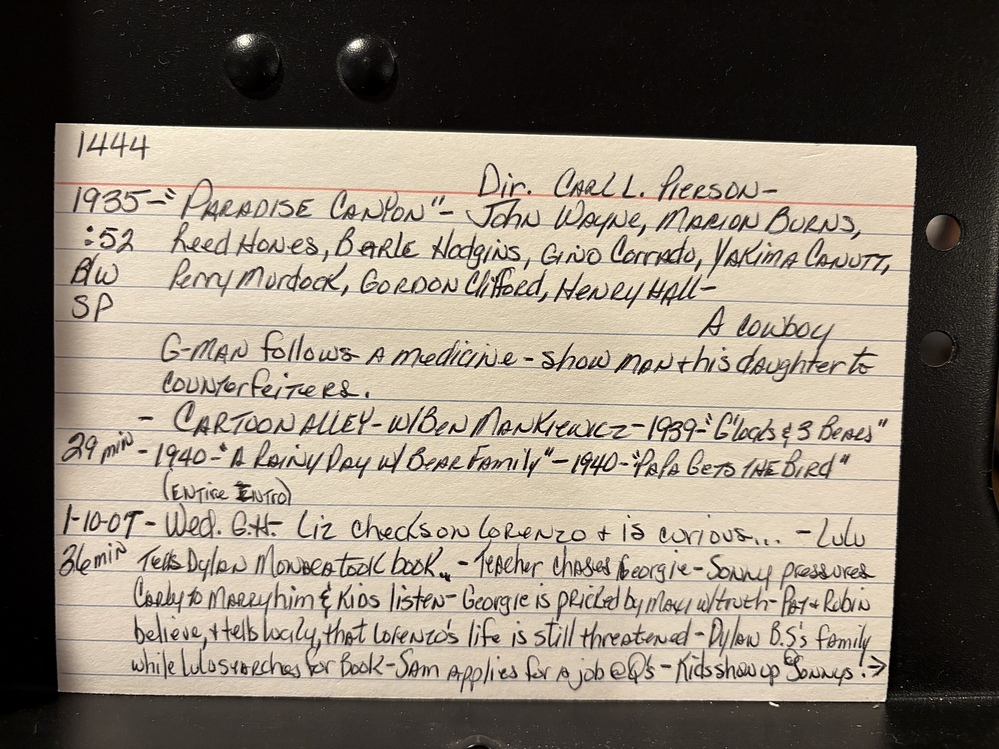 1444
Dir. Carl L. Pierson-
1935-"Paradise Canyon"- John Wayne, Marion Burns,
:52 Reed Hones, Earle Hodgins, Gino Corrado, Yakima Canutt,
B/W Perry Murdock, Gordon Clifford, Henry Hall-
SP A cowboy
G-Man follows a medicine-show man & his daughter to
counterfeiters.
- Cartoon Alley- w/Ben Mankiewicz-1939-"G'locks & 3 Bears"
29 min -1940-"A Rainy Day w/ Bear Family"-1940-"Papa Gets the Bird"
(Entire Intro)
1-10-07- Wed. G.H.- Liz checks on Lorenzo + is curious... - Lulu
36 min Tells Dylan took book.. - Teacher chases Georgie- Sonny pressures
Carly to Marry him & Kids listen- Georgie is pricked by Maxi w/truth- Pat + Robin
believe, + tells Lucky, that Lorenzo's life is still threatened- Dylan B.S.'s family
while Lulu searches for Book- Sam applies for a job @ Q's - Kids show up @ Sonnys!→